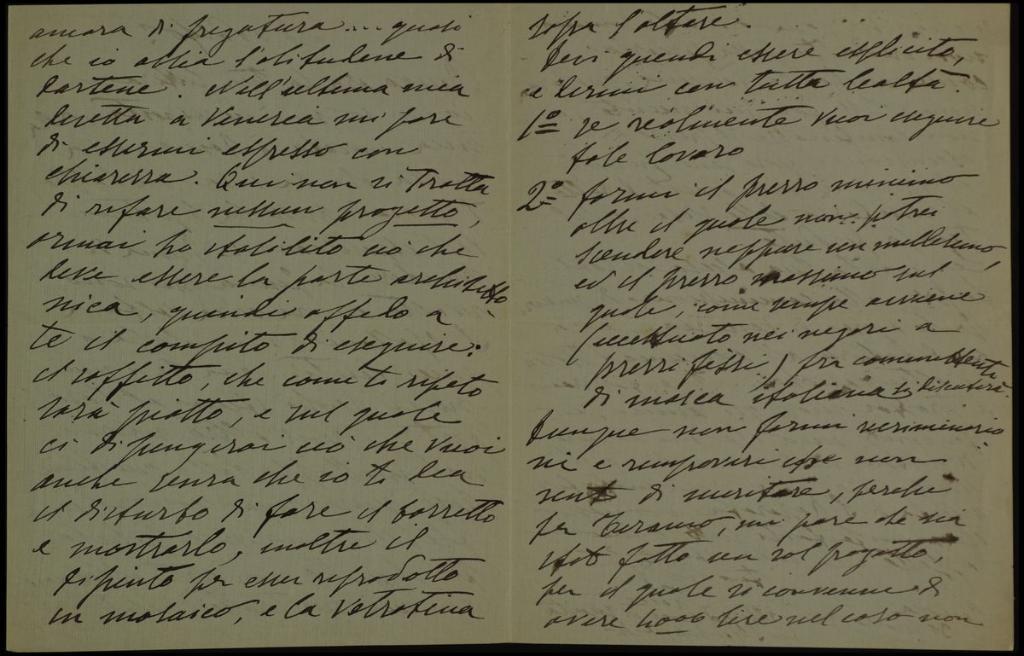 ancora di fregatura... quasi
che io abbia l'abitudine di
dartene. Nell'ultima mia
diretta a Venezia mi pare
di essermi espresso con
chiarezza. Qui non si tratta
di rifare nessun progetto,
ormai ho stabilito ciò che
deve essere la parte architetto-
nica, quindi affido a
te il compito di eseguire:
il soffitto, che come ti ripeto
sarà piatto, e sul quale
ci dipingerai ciò che vuoi
anche senza che io ti dia
il disturbo di fare il bozzetto
e mostrarlo, inoltre il
dipinto per esser riprodotto
in mosaico, e la vetratina
sopra l'altare.
Devi quindi essere esplicito,
e dirmi con tutta lealtà.
1º se realmente vuoi eseguire
tale lavoro
2º farmi il prezzo minimo
oltre il quale non potrei
scendere neppure un millesimo,
ed il prezzo massimo sul
quale, come sempre avviene
(eccettuato nei negozi a
prezzi fissi) fra
di marca italiana si discuterà.
Dunque non farmi recriminazio
ni e rimproveri che non
sento di meritare, perchè
per Teramo, mi pare che sia
stato fatto un sol progetto,
per il quale si convenne di
avere 4000 lire nel caso non